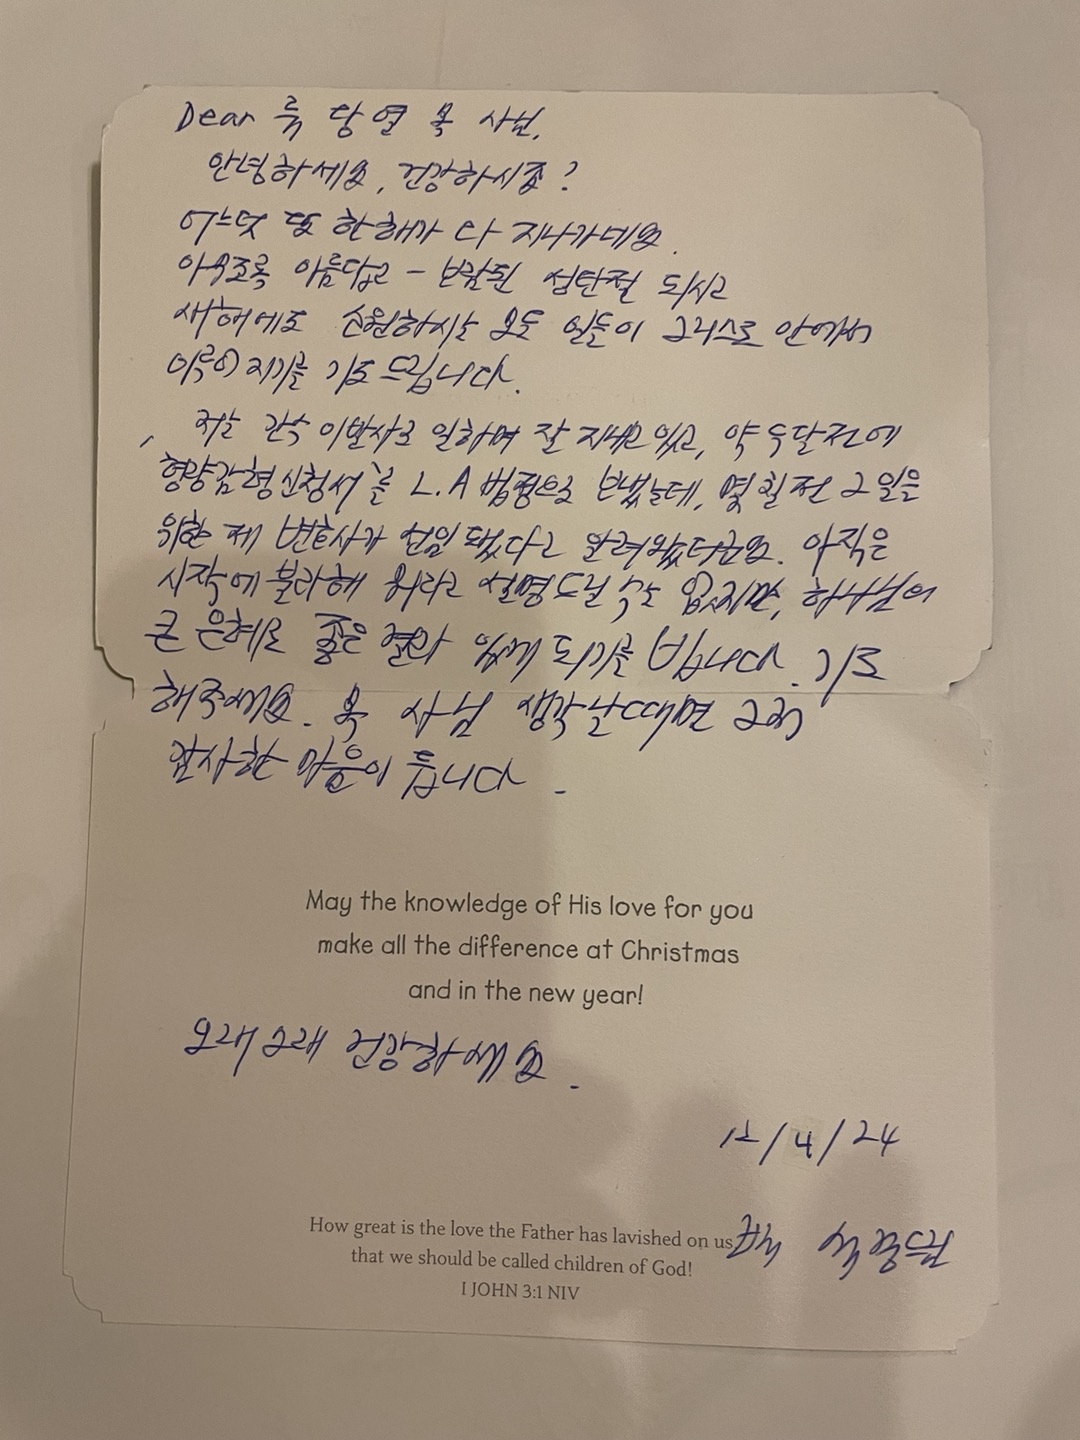 Dear 류 당열 목 사님,
안녕하세요, 건강하시죠?
어느덧 또 한해가 다 지나가네요.
아무쪼록 아름답고 - 보람된 성탄절 되시고
새해에도 소원하시는 모든 일들이 그리스도 안에서
이루어지기를 기도 드립니다.
저는 간수 이발사로 일하며 잘 지내고 있고, 약 두달전에
형량감형신청서를 L.A 법정으로 보냈는데, 몇 칠전 그 일을
위한 제 변호사가 선임 됐다고 알려왔더군요. 아직은
시작에 불과해 뭐라고 설명드릴 수는 없지만, 하나님의
큰 은혜로 좋은 결과 있게 되기를 빕니다. 기도
해주세요. 목 사님 생각날때면 그저
감사한 마음이 듭니다.
May the knowledge of His love for you
make all the difference at Christmas
and in the new year!
오래 오래 건강하세요.
12/4/24
How great is the love the Father has lavished on us,
that we should be called children of God!
I JOHN 3:1 NIV